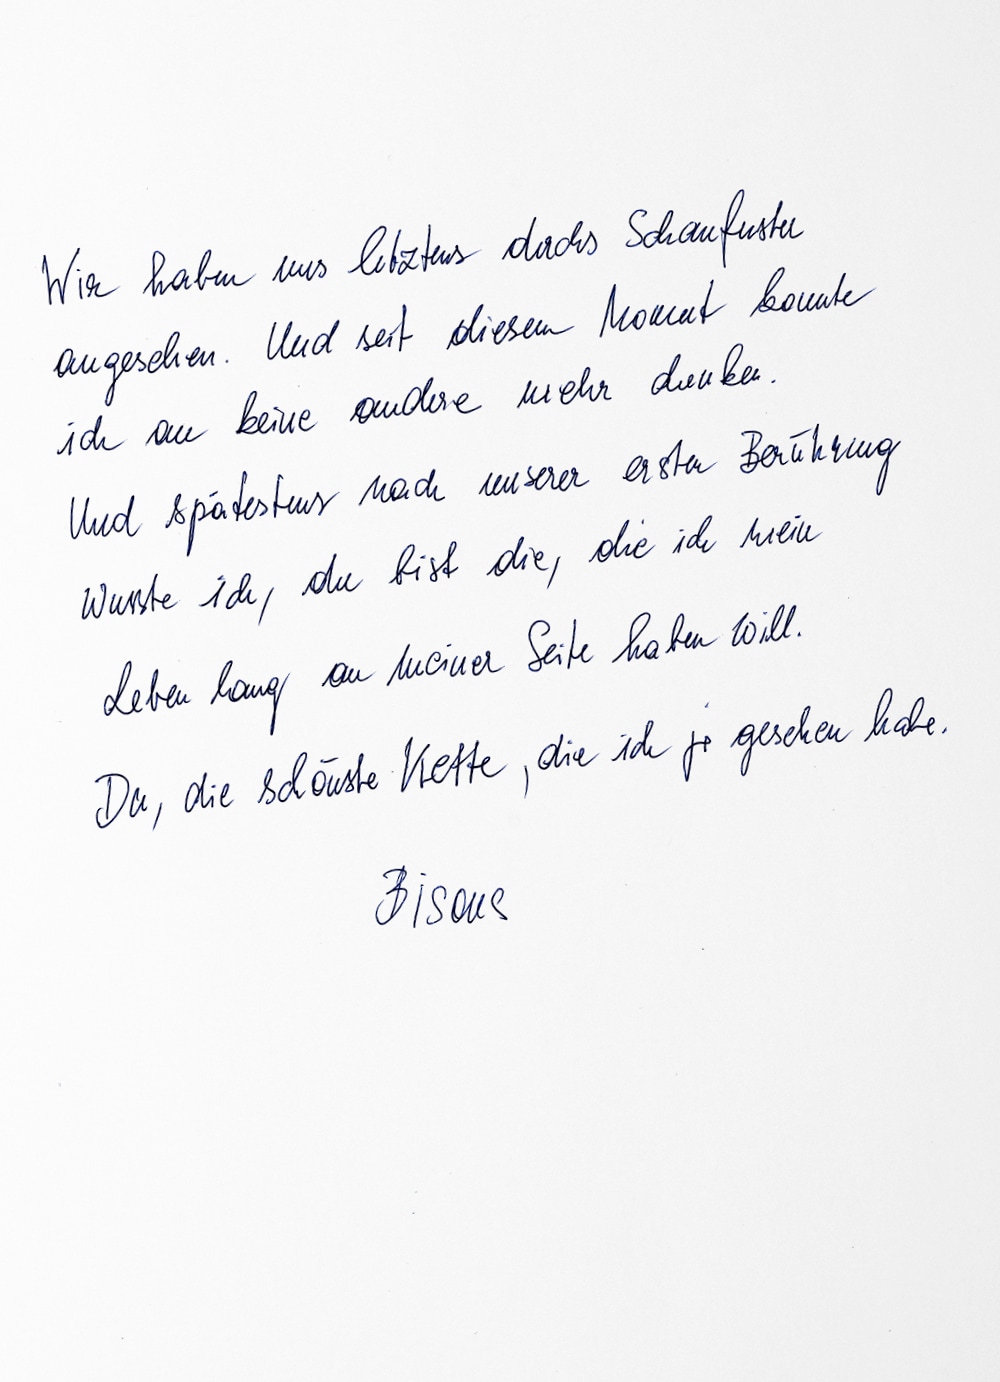 Wir haben uns letztens durchs Schaufenster
angesehen. Und seit diesem Moment konnte
ich an keine andere mehr denken.
Und spätestens nach unserer ersten Berührung
wusste ich, du bist die, die ich mein
Leben lang an meiner Seite haben will.
Du, die schönste Kette, die ich je gesehen habe.
Bisous